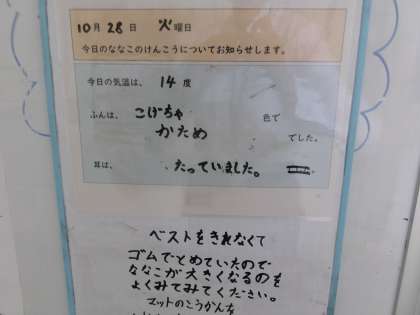 10月 28日 火曜日
今日のななこのけんこうについてお知らせします。
今日の気温は、 14 度
ふんは、 こげちゃ 色で
かため でした。
耳は、 たっていました。
ベストをきれなくて
ゴムでとめていたので
ななこが大きくなるのを
よくみてみてください。
マットのこうかんも